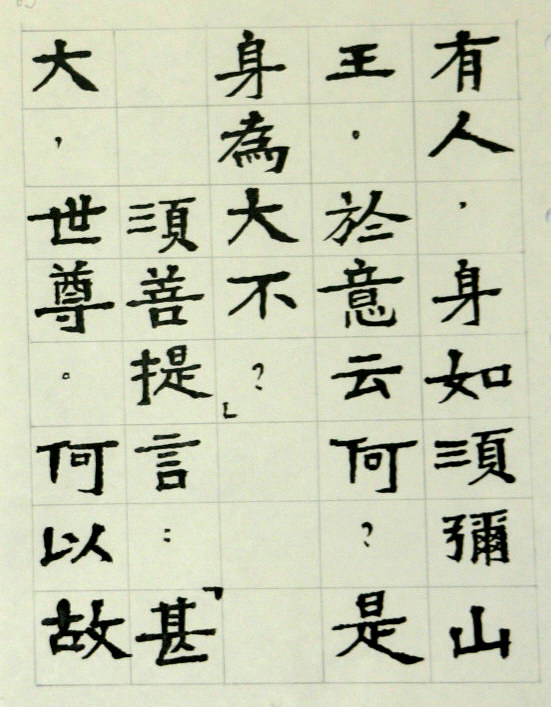 有人，身如須彌山
王。於意云何？是
身為大不？」
須善提言：「甚
大，世尊。何以故